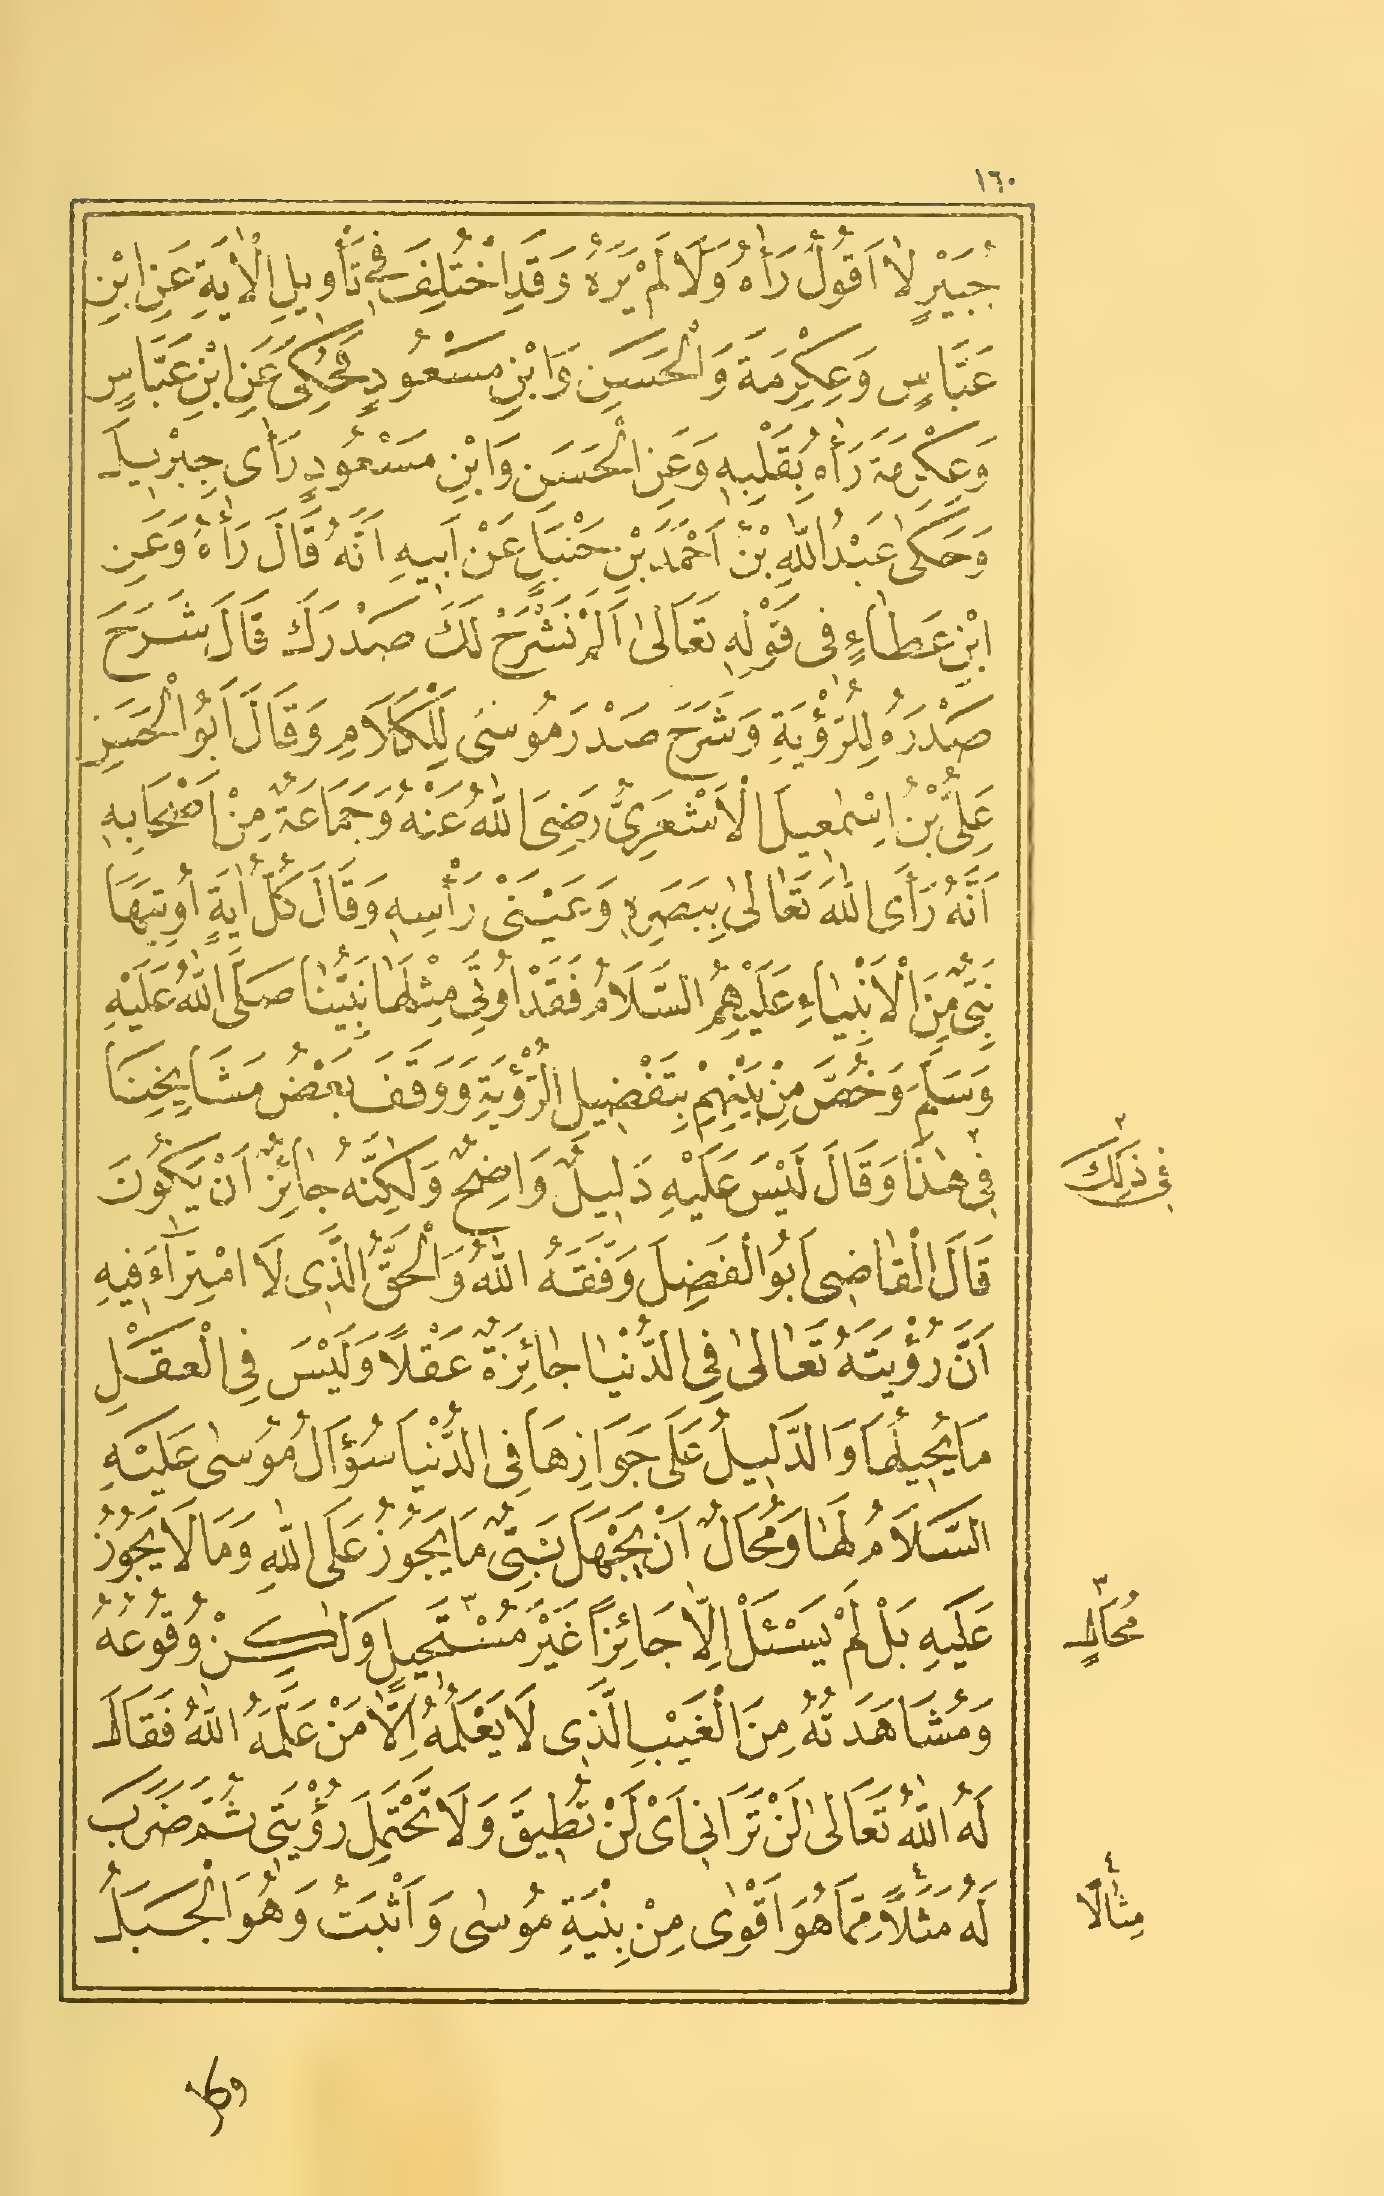 ١٦٠
جُبَيْرٍ لَا اَقُولُ رَأٰهُ وَلَا لَمْ يَرَهُ وَقَدِ اخْتُلِفَ فِي تَأْوِيلِ الْاٰيَةِ عَنِ ابْنِ
عَبَّاسٍ وَعِكْرِمَةَ وَالْحَسَنِ وَابْنِ مَسْعُودٍ فَحُكِىَ عَنِ ابْنِ عَبَّاسٍ
وَعِكْرِمَةَ رَأٰهُ بِقَلْبِهِ وَعَنِ الْحَسَنِ وَابْنِ مَسْعُودٍ رَأٰى جِبْرِيلَ
وَحَكٰى عَبْدُ اللّٰهِ بْنُ اَحْمَدَ بْنِ حَنْبَلٍ عَنْ اَبِيهِ اَنَّهُ قَالَ رَأٰهُ وَعَنِ
ابْنِ عَطَاءٍ فِى قَوْلِهِ تَعَالٰى اَلَمْ نَشْرَحْ لَكَ صَدْرَكَ قَالَ شَرَحَ
صَدْرَهُ لِلرُّؤْيَةِ وَشَرَحَ صَدْرَ مُوسٰى لِلْكَلَامِ وَقَالَ اَبُو الْحَسَنِ
عَلِىُّ بْنُ اِسْمٰعِيلَ الْاَشْعَرِىُّ رَضِىَ اللّٰهُ عَنْهُ وَجَمَاعَةٌ مِنْ اَصْحَابِهِ
اَنَّهُ رَأَى اللّٰهَ تَعَالٰى بِبَصَرِهِ وَعَيْنَىْ رَأْسِهِ وَقَالَ كُلُّ اٰيَةٍ اُوتِيَهَا
نَبِىٌّ مِنَ الْاَنْبِيَاءِ عَلَيْهِمُ السَّلَامُ فَقَدْ اُوتِىَ مِثْلَهَا نَبِيُّنَا صَلَّى اللّٰهُ عَلَيْهِ
وَسَلَّمَ وَخُصَّ مِنْ بَيْنِهِمْ بِتَفْضِيلِ الرُّؤْيَةِ وَوَقَفَ بَعْضُ مَشَايِخِنَا
فِى هٰذَا ٢ وَقَالَ لَيْسَ عَلَيْهِ دَلِيلٌ وَاضِحٌ وَلٰكِنَّهُ جَائِزٌ اَنْ يَكُونَ
٢ فِى ذٰلِكَ
قَالَ الْقَاضِى اَبُو الْفَضْلِ وَفَّقَهُ اللّٰهُ وَالْحَقُّ الَّذِى لَا امْتِرَاءَ فِيهِ
اَنَّ رُؤْيَتَهُ تَعَالٰى فِى الدُّنْيَا جَائِزَةٌ عَقْلًا وَلَيْسَ فِى الْعَقْلِ
مَا يُحِيلُهَا وَالدَّلِيلُ عَلَى جَوَازِهَا فِى الدُّنْيَا سُؤَالُ مُوسٰى عَلَيْهِ
السَّلَامُ لَهَا وَمُحَالٌ اَنْ يَجْهَلَ نَبِىٌّ مَا يَجُوزُ عَلَى اللّٰهِ وَمَا لَا يَجُوزُ
عَلَيْهِ بَلْ لَمْ يَسْئَلْ اِلَّا جَائِزًا غَيْرَ مُسْتَحِيلٍ ٣ وَلٰكِنْ وُقُوعُهُ
٣ مُحَالٍ
وَمُشَاهَدَتُهُ مِنَ الْغَيْبِ الَّذِى لَا يَعْلَمُهُ اِلَّا مَنْ عَلَّمَهُ اللّٰهُ فَقَالَ
لَهُ اللّٰهُ تَعَالٰى لَنْ تَرَانِى اَىْ لَنْ تُطِيقَ وَلَا تَحْتَمِلَ رُؤْيَتِى ثُمَّ ضَرَبَ
لَهُ مَثَلًا ٤ مِمَّا هُوَ اَقْوٰى مِنْ بِنْيَةِ مُوسٰى وَاَثْبَتُ وَهُوَ الْجَبَلُ
٤ مِثَالًا